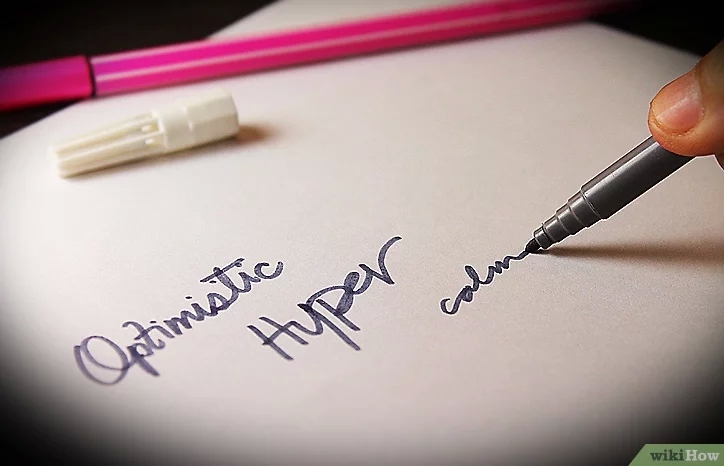 Optimistic
Hyper
calm
wikiHow